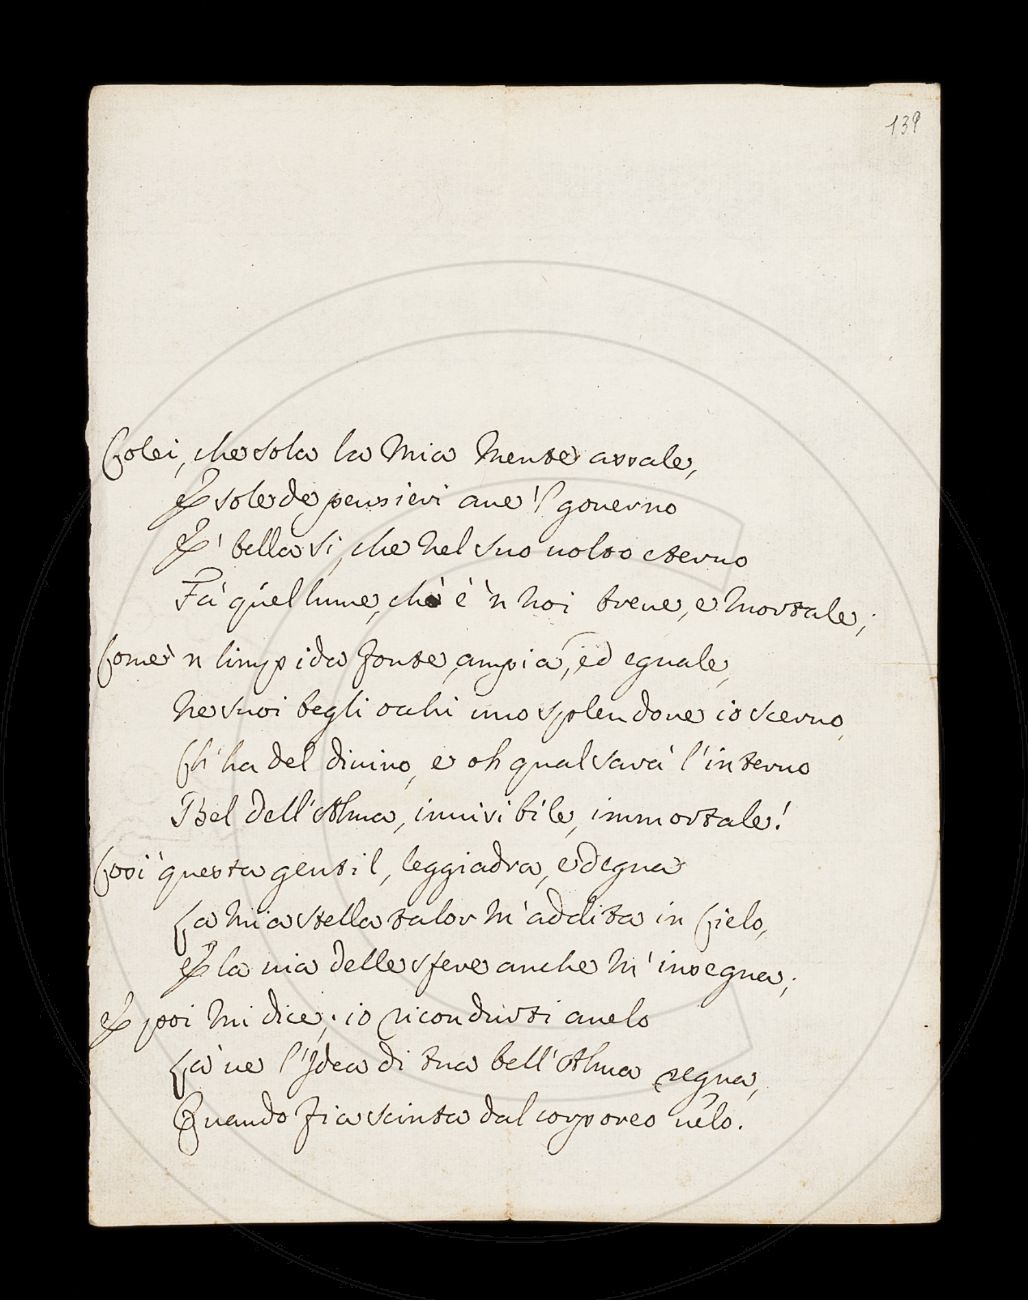 139
Colei, che sola la mia mente assale,
E sola de pensieri aue 'l gouerno
E' bella sì, che nel suo uolto eterno
Fà quel lume, ch' è 'n noi breue, e mortale;
Come 'n limpida fonte, ampia, ed eguale,
Ne suoi begli occhi uno splendore io scerno,
Ch' ha del diuino, e oh qual sarà l'interno
Bel dell'Alma, inuisibile, immortale!
Così questa gentil, leggiadra, e degna
La mia stella talor m' addita in Cielo,
E la uia delle sfere anche m' insegna;
E poi mi dice; io ricondurti anelo
Là 'ue l'Idea di tua bell'Alma regna,
Quando fia scinta dal corporeo uelo.